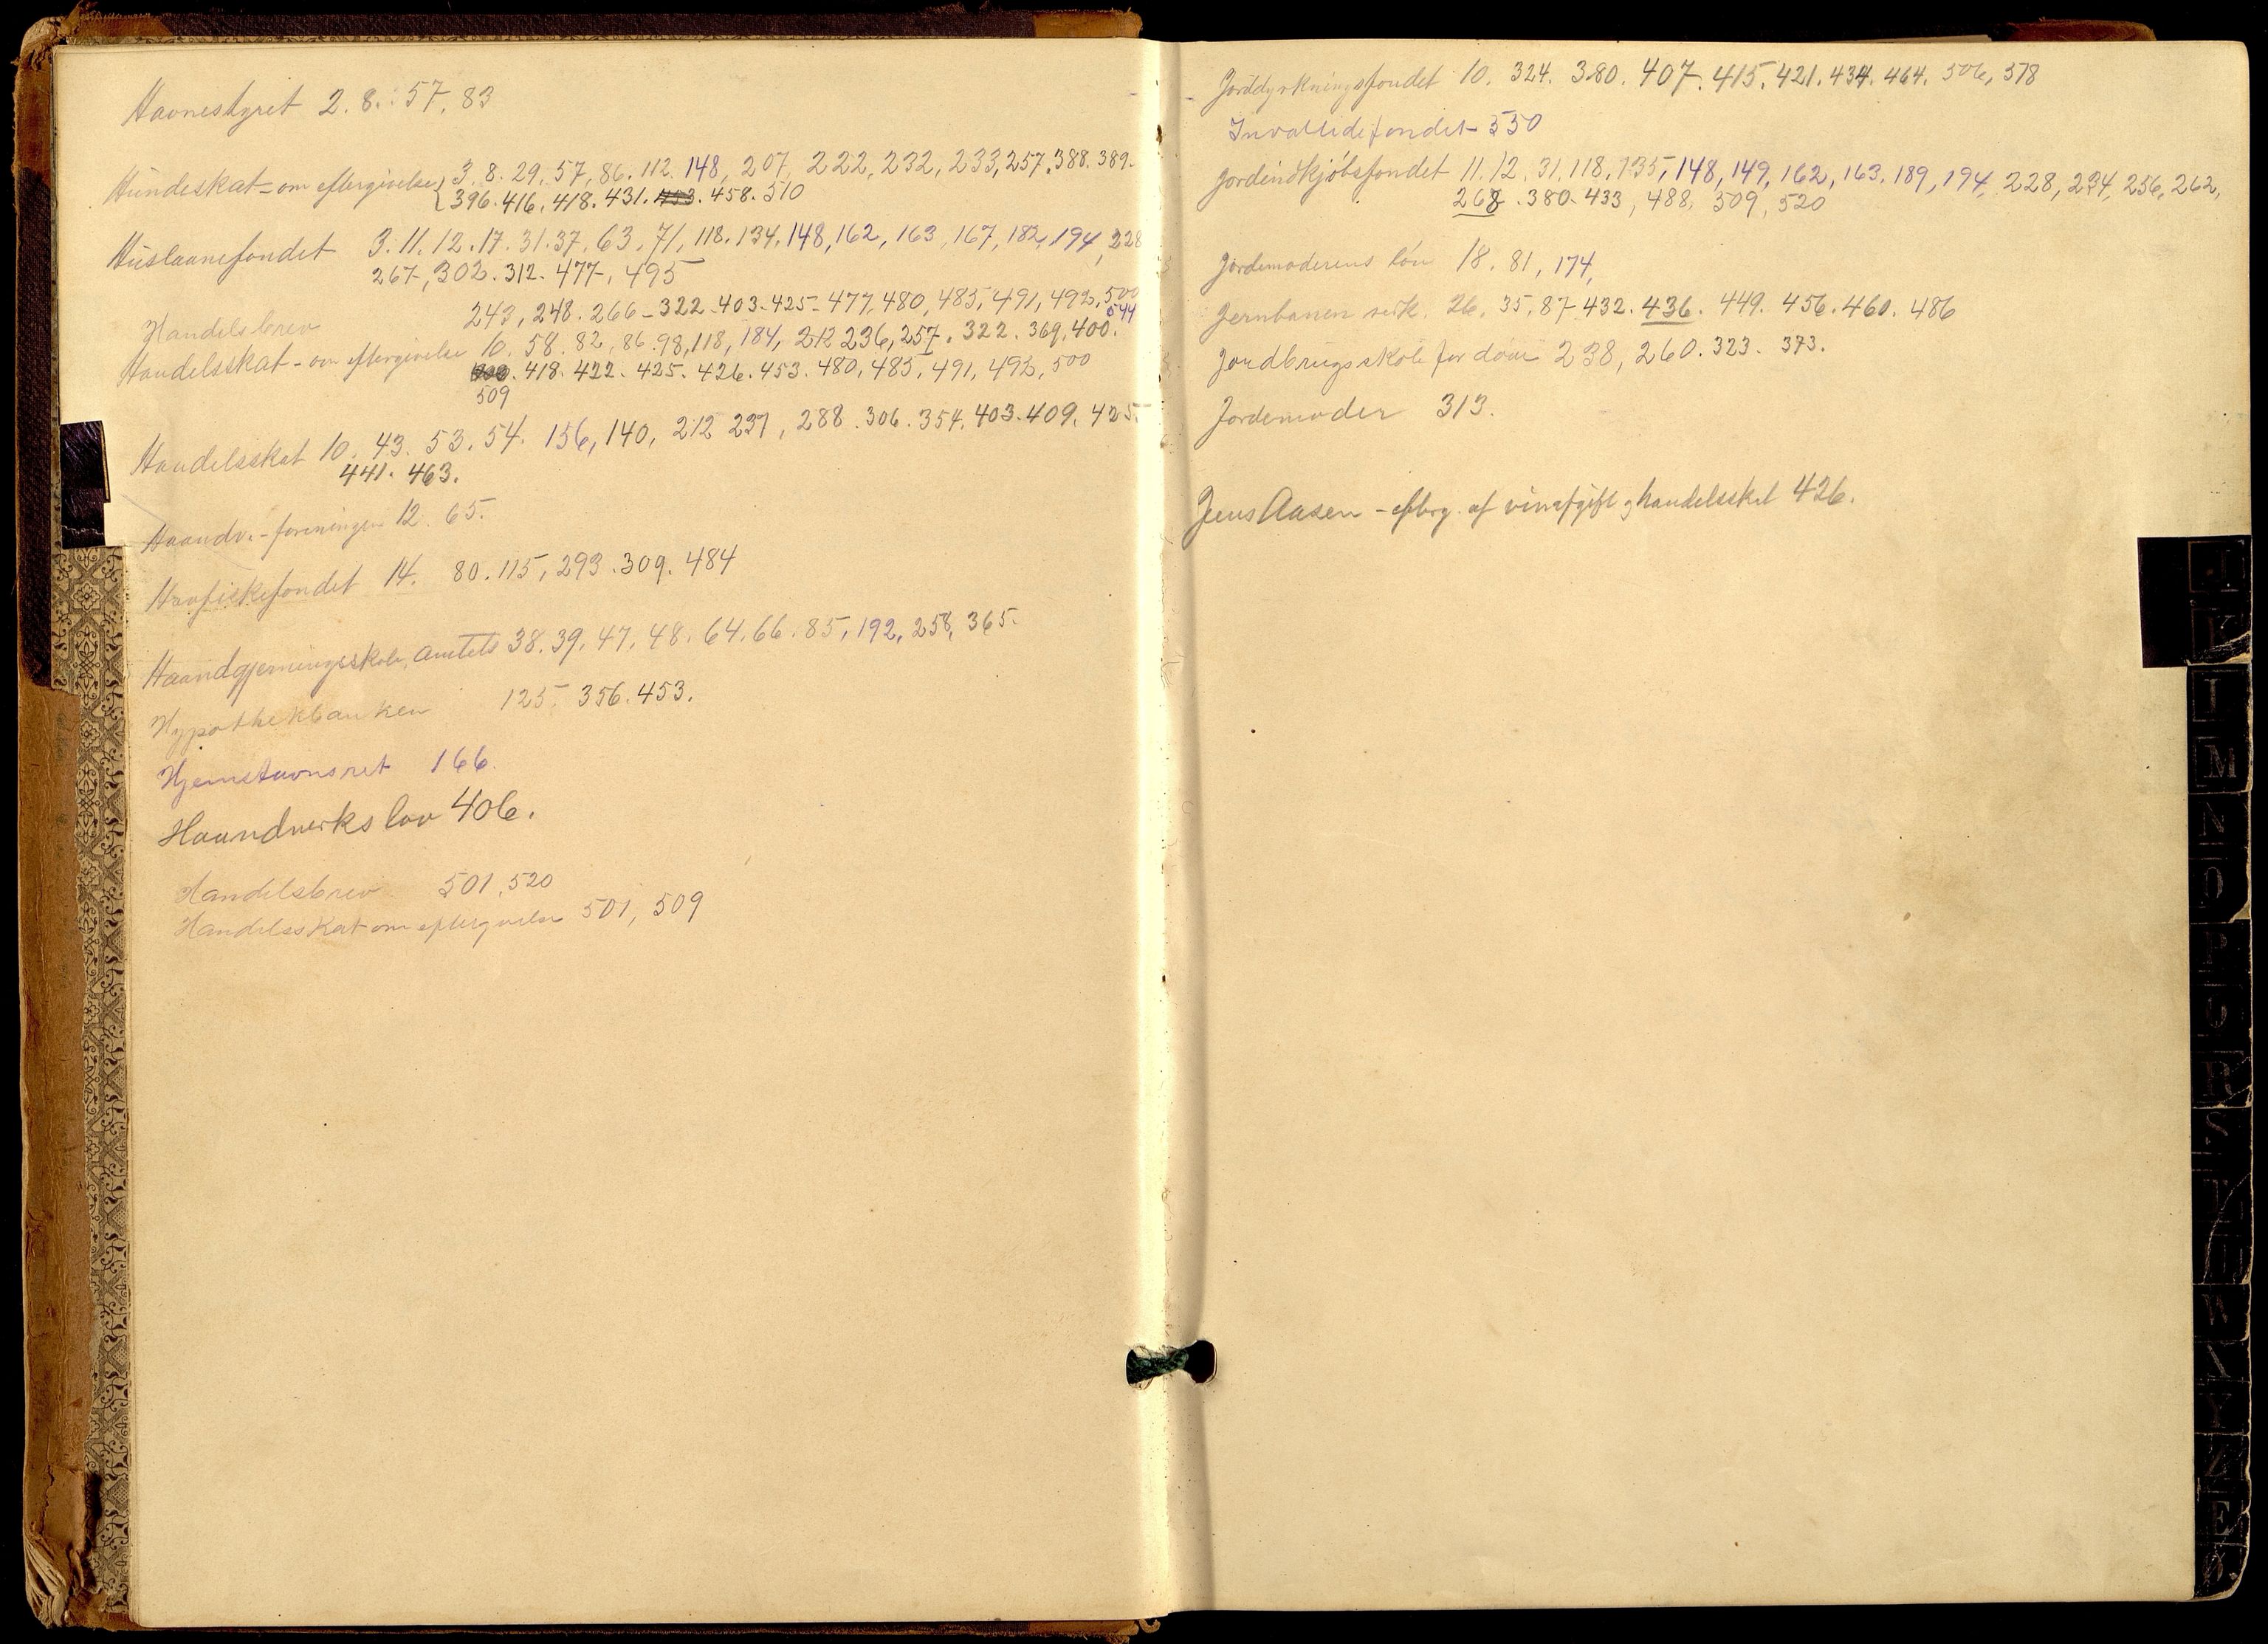 Havnestyret 2. 8. 57, 83
Hundeskat - om eftergivelse 3. 8. 29. 57, 86. 112. 148, 207, 222, 232, 233, 257. 388. 389.
396. 416. 418. 431. 453. 458. 510
Huslaanefondet 3. 11. 12. 17. 31. 37. 63. 71, 118. 134. 148, 162, 163, 167, 182, 194, 228
267, 302. 312. 477, 495
Handelsbrev 243, 248. 266 - 322 - 403 - 425 - 477, 480, 485, 491, 492, 500
544
Handelsskat - om eftergivelse 10. 58. 82, 86. 98, 118, 184, 212 236, 257. 322. 369. 400.
418. 422. 425. 426. 453. 480, 485, 491, 492, 500
509
Handelsskat 10. 43. 53. 54. 156, 140, 212 237, 288. 306. 354. 403. 409. 425.
441. 463.
Haandv. - foreningen 12. 65.
Havfiskefondet 14. 80. 115, 293. 309. 484
Haandgjerningsskole, amtets 38. 39. 47. 48. 64. 66. 85, 192, 258, 365.
Hypothekbanken 125. 356. 453.
Hjemstavnsret 166.
Haandverkslov 406.
Handelsbrev 501, 520
Handelsskat om eftergivelse 501, 509
Jorddyrkningsfondet 10. 324. 380. 407. 415. 421. 434. 464. 506, 578
Invallidefondet 530
Jordindkjøbsfondet 11. 12. 31. 118, 135, 148, 149, 162, 163. 189, 194, 228, 234, 256, 262,
268. 380. 433, 488, 509, 520
Jordemoderens løn 18. 81, 174,
Jernbanen verk. 26. 35, 87 - 432. 436. 449. 456. 460. 486
Jordbrugsskole for døve 238, 260. 323. 373.
Jordemoder 313.
Jens Aasen - efterg. af vinafgift og handelsskat 426.
I
M
N
O
P
R
S
T
Y
Z